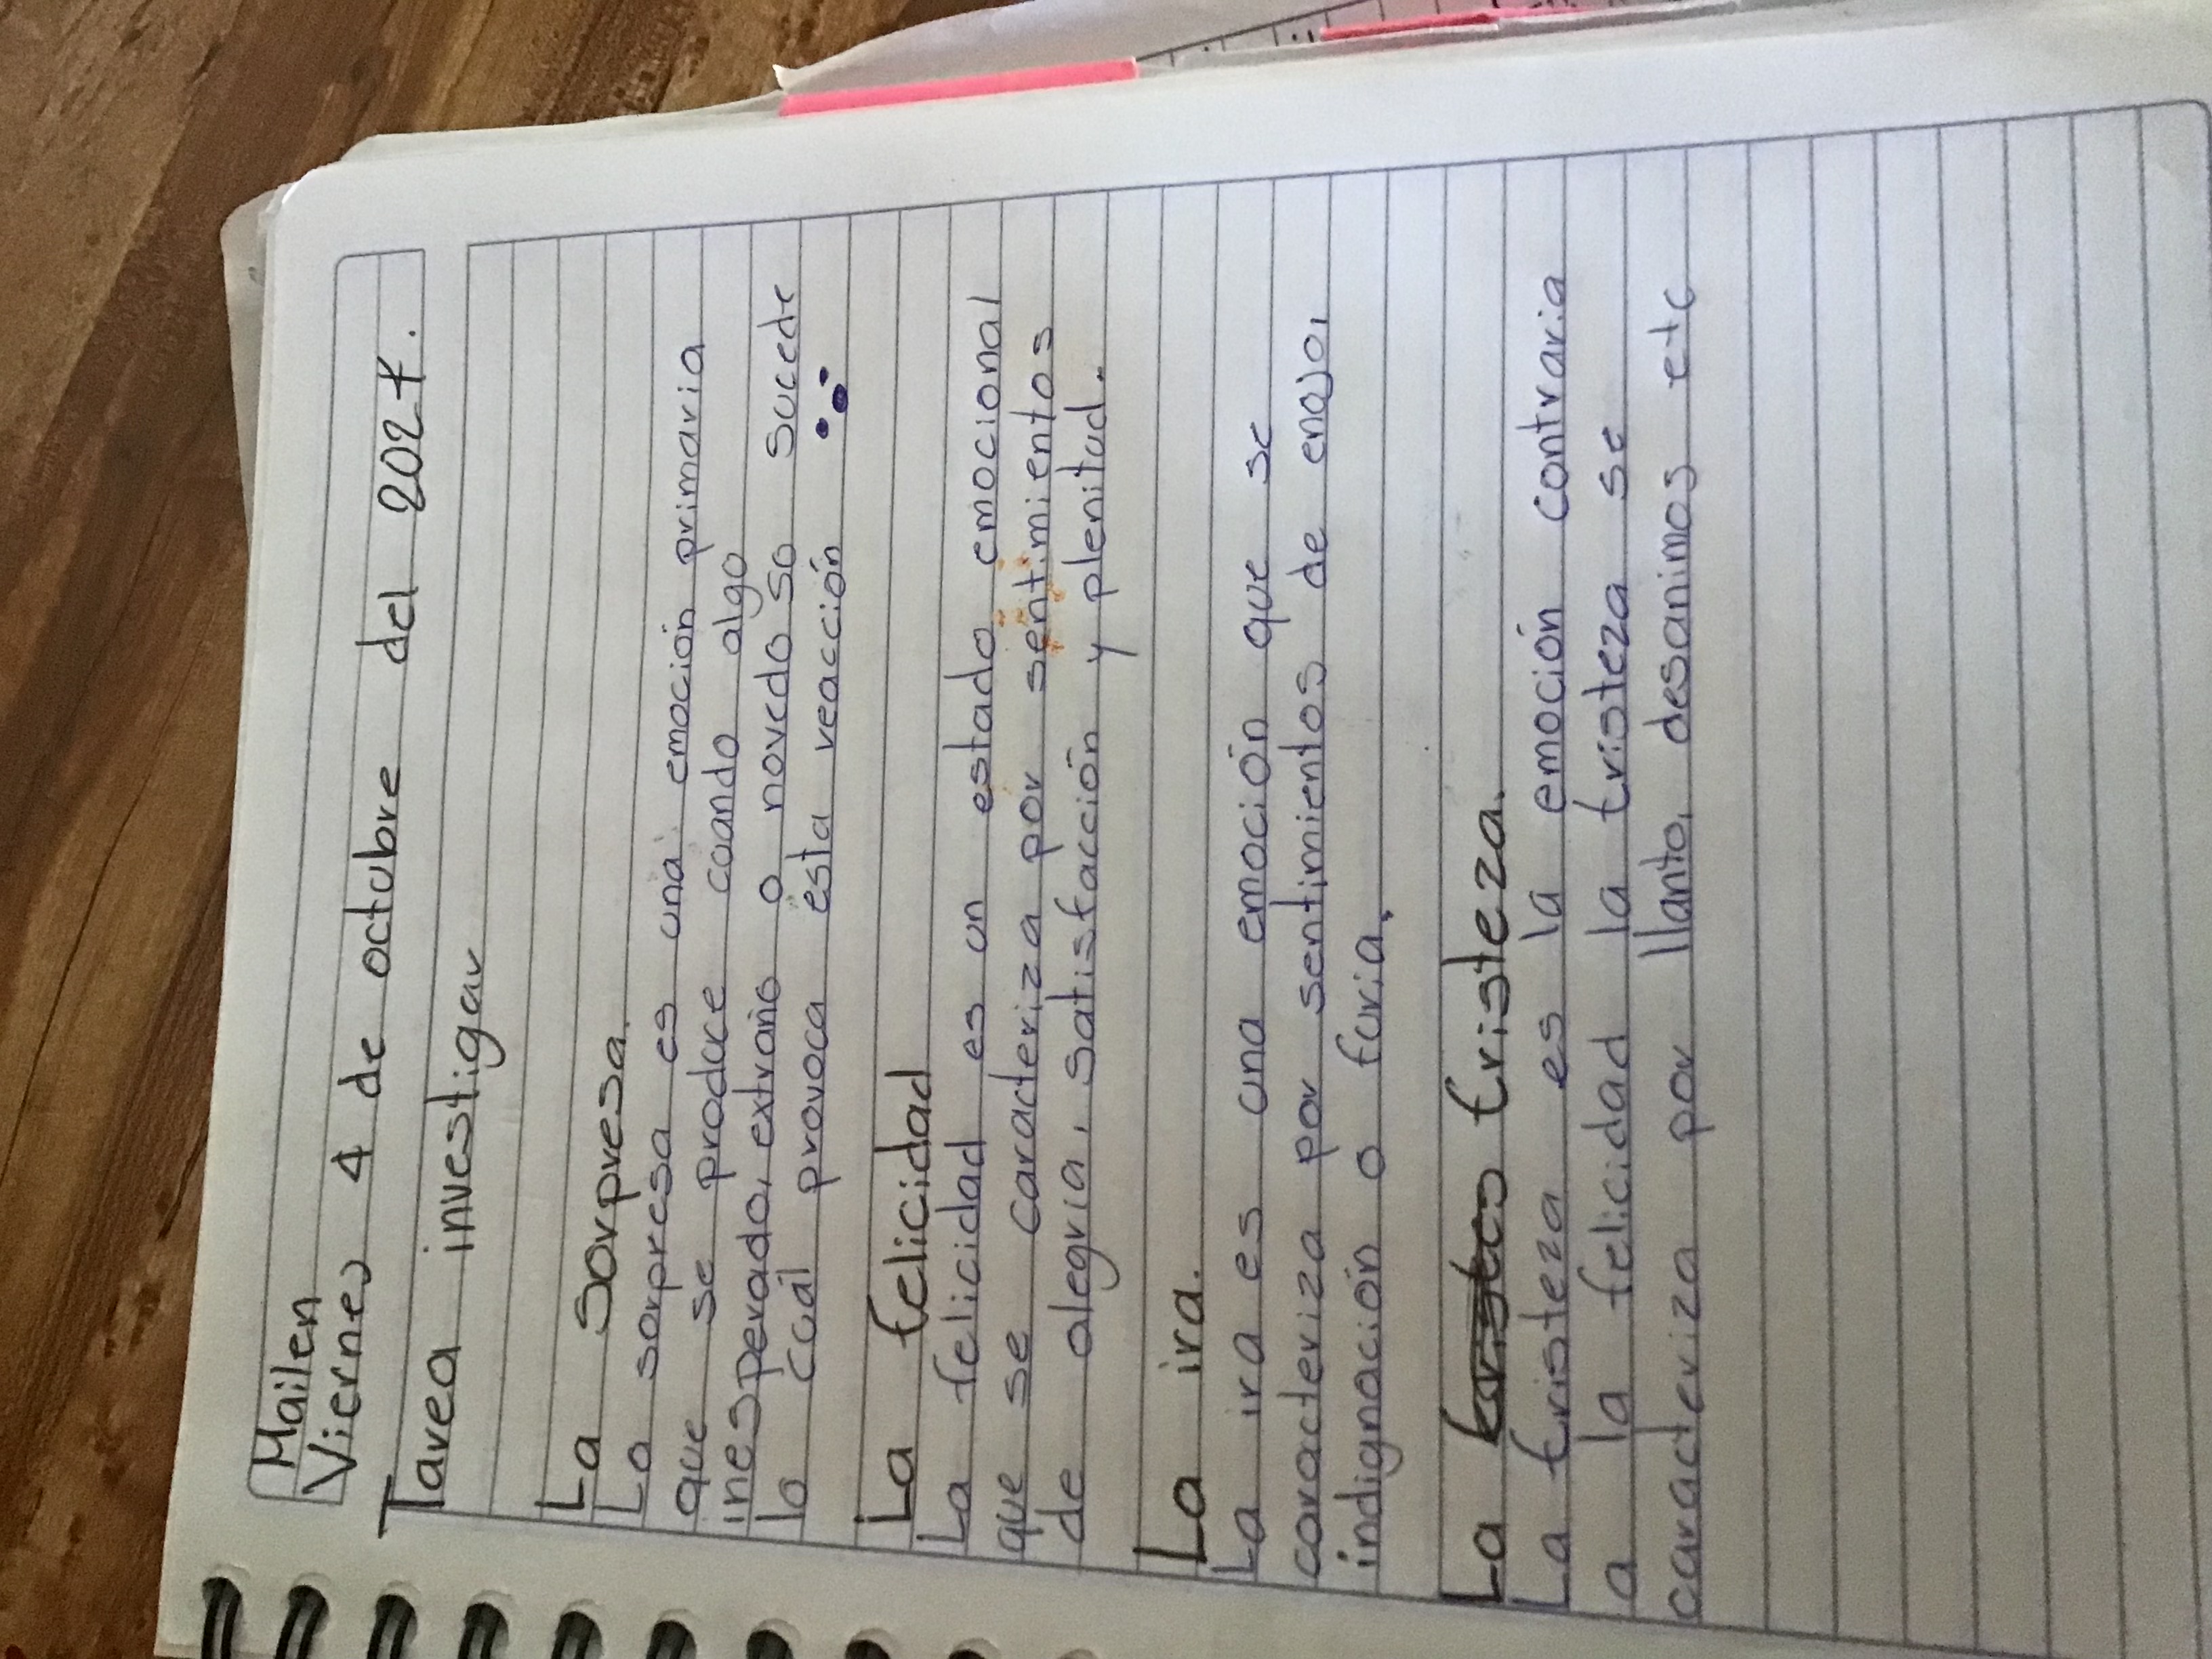 Mailen
Viernes 4 de octubre del 2024.
Tarea investigar
La sorpresa.
La sorpresa es una emoción primaria
que se produce cuando algo
inesperado, extraño o novedoso sucede
lo cuál provoca esta reacción
La felicidad
La felicidad es un estado emocional
que se caracteriza por sentimientos
de alegria, satisfacción y plenitud.
La ira.
La ira es una emoción que se
caracteriza por sentimientos de enojo,
indignación o furia.
La tristeza.
La tristeza es la emoción contraria
a la felicidad la tristeza se
caracteriza por llanto, desanimos etc